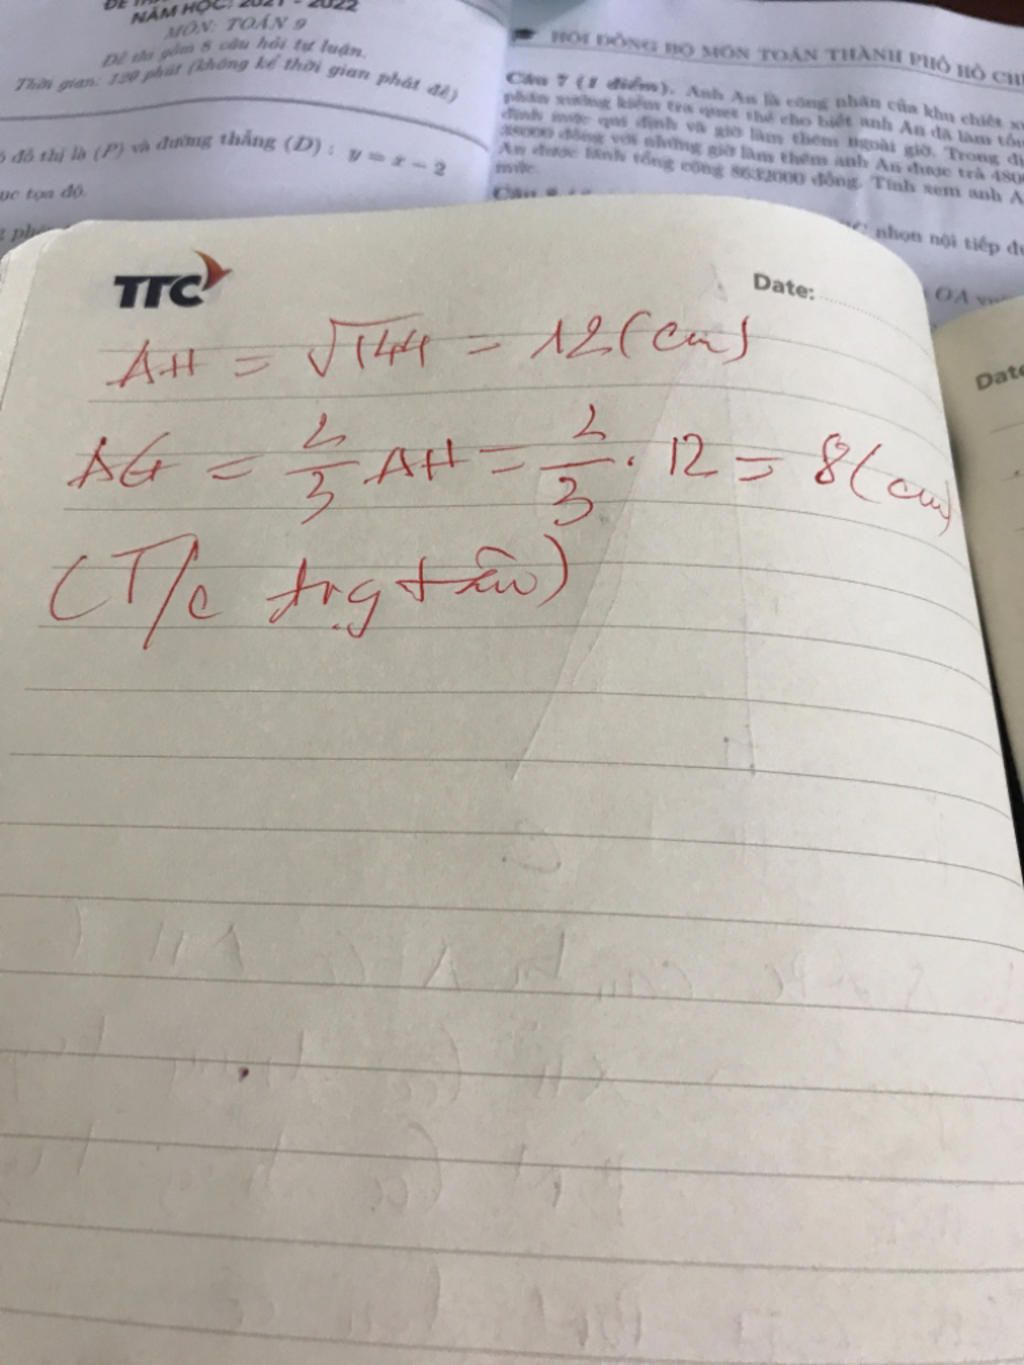 NĂM HỌC: 2021 - 2022
MÔN: TOÁN 9
Đề thi gồm 8 câu hỏi tự luận.
Thời gian: 120 phút (không kể thời gian phát đề)
đồ thị là (P) và đường thẳng (D) : y = x - 2
tọa độ.
HỘI ĐỒNG BỘ MÔN TOÁN THÀNH PHỐ HỒ CH
Câu 7 (1 điểm). Anh An là công nhân của khu chiết x
phân xưởng kiểm tra quẹt thẻ cho biết anh An đã làm tổn
định mức qui định và giờ làm thêm ngoài giờ. Trong đ
38000 đồng với những giờ làm thêm anh An được trả 480
An được lãnh tổng cộng 8632000 đồng. Tính xem anh A
mức.
nhọn nội tiếp đư
OA
TTC
Date:
Date
AH = √144 = 12 (cm)
AG = 2/3 AH = 2/3 . 12 = 8 (cm)
(T/c trg tâm)